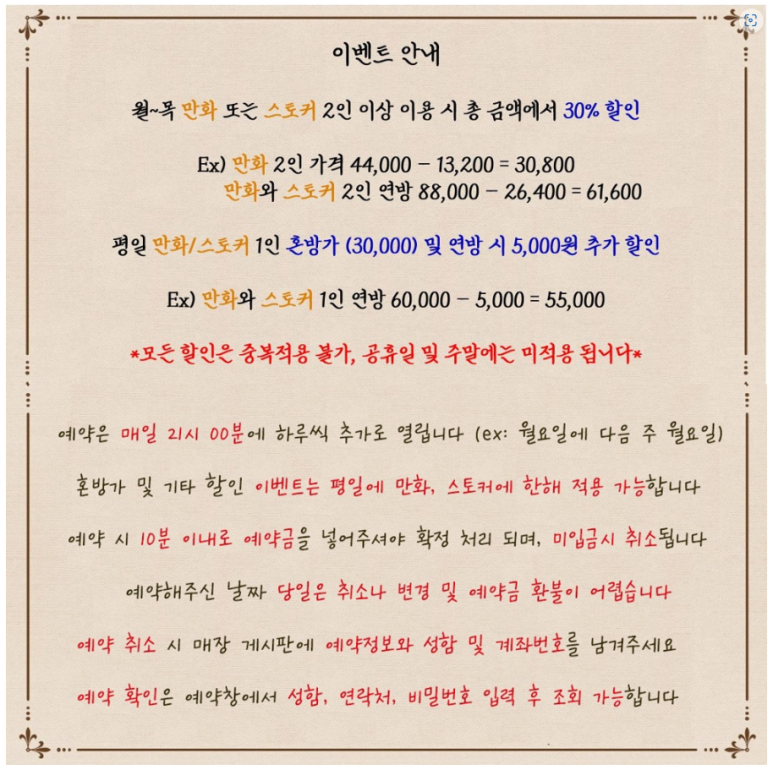 이벤트 안내
월~목 만화 또는 스토커 2인 이상 이용 시 총 금액에서 30% 할인
Ex) 만화 2인 가격 44,000 - 13,200 = 30,800
만화와 스토커 2인 연방 88,000 - 26,400 = 61,600
평일 만화/스토커 1인 혼방가 (30,000) 및 연방 시 5,000원 추가 할인
Ex) 만화와 스토커 1인 연방 60,000 - 5,000 = 55,000
*모든 할인은 중복적용 불가, 공휴일 및 주말에는 미적용 됩니다*
예약은 매일 21시 00분에 하루씩 추가로 열립니다 (ex: 월요일에 다음 주 월요일)
혼방가 및 기타 할인 이벤트는 평일에 만화, 스토커에 한해 적용 가능합니다
예약 시 10분 이내로 예약금을 넣어주셔야 확정 처리 되며, 미입금시 취소됩니다
예약해주신 날짜 당일은 취소나 변경 및 예약금 환불이 어렵습니다
예약 취소 시 매장 게시판에 예약정보와 성함 및 계좌번호를 남겨주세요
예약 확인은 예약창에서 성함, 연락처, 비밀번호 입력 후 조회 가능합니다